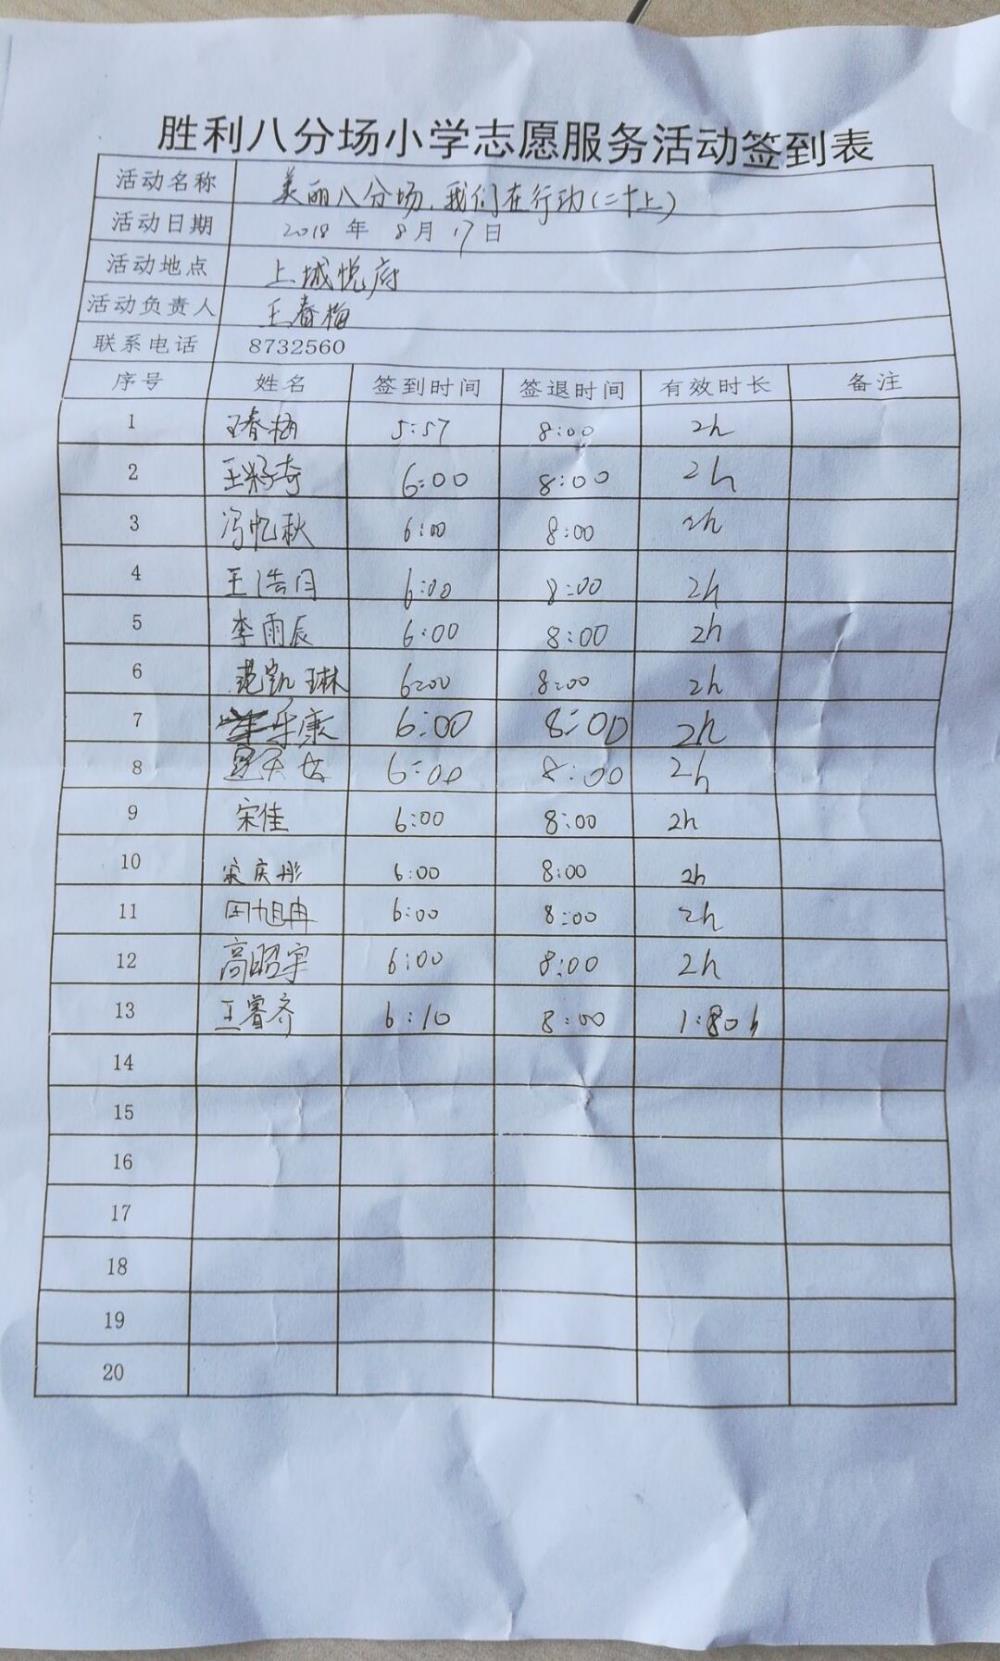 胜利八分场小学志愿服务活动签到表
活动名称 美丽八分场,我们在行动(二十上)
活动日期 2018 年 8 月 17 日
活动地点 上城悦府
活动负责人 王春梅
联系电话 8732560
序号 姓名 签到时间 签退时间 有效时长 备注
1 王春梅 5:57 8:00 2h
2 王籽奇 6:00 8:00 2h
3 冯忆秋 6:00 8:00 2h
4 王浩 6:00 8:00 2h
5 李雨辰 6:00 8:00 2h
6 范凯琳 6:00 8:00 2h
7 乐康 6:00 8:00 2h
8 6:00 8:00 2h
9 宋佳 6:00 8:00 2h
10 宋庆彤 6:00 8:00 2h
11 田旭冉 6:00 8:00 2h
12 高昭宇 6:00 8:00 2h
13 王睿齐 6:10 8:00 1:80h
14
15
16
17
18
19
20